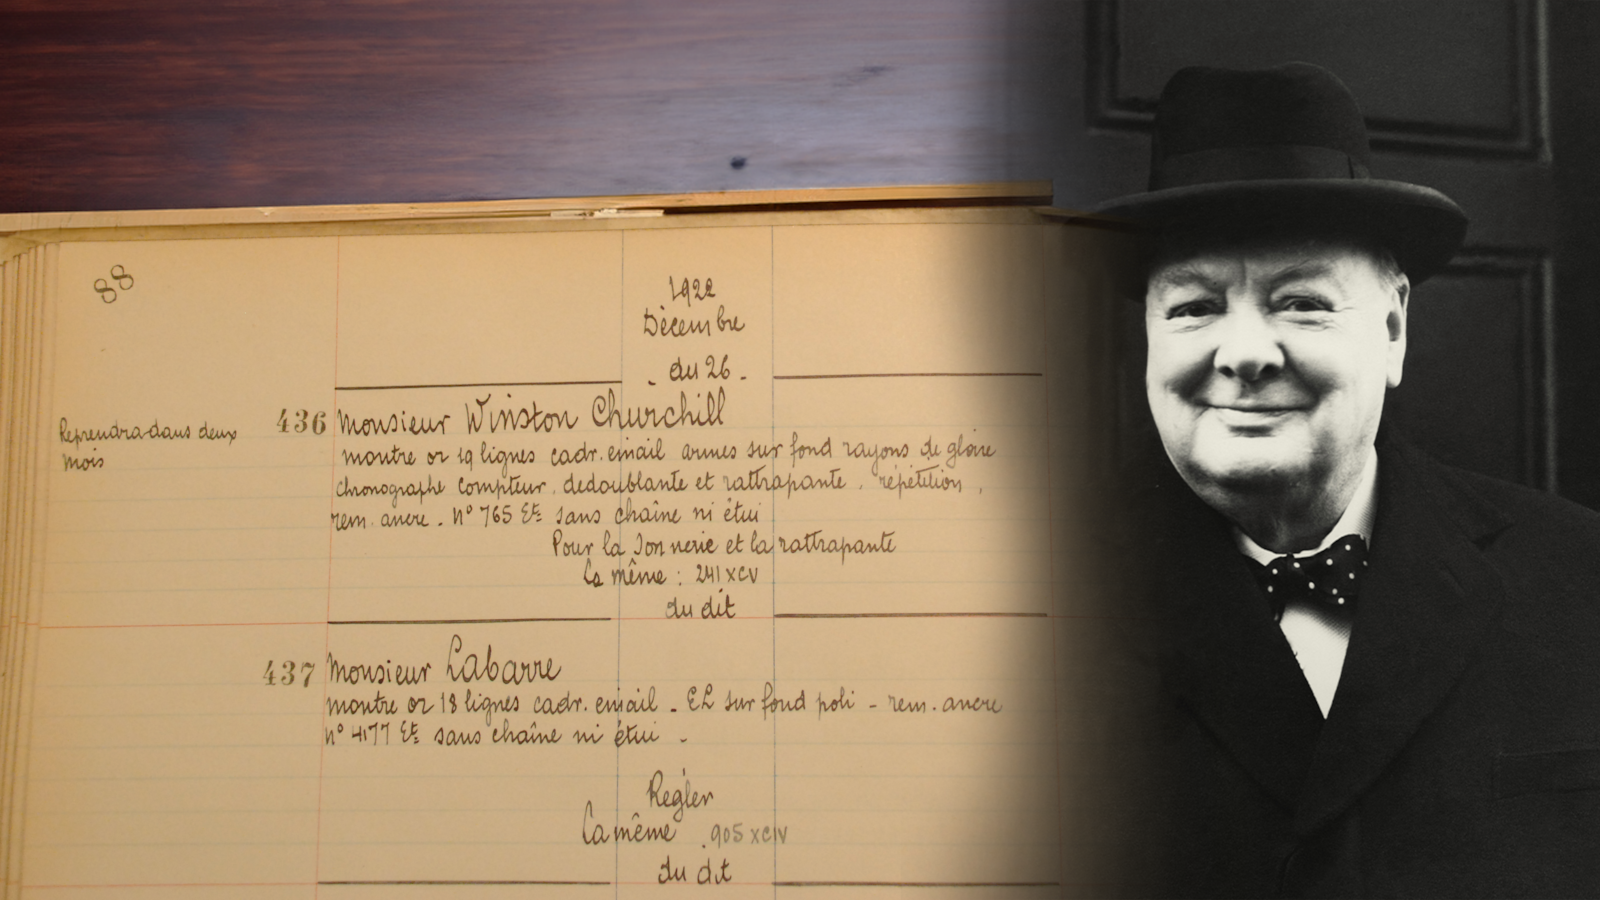 88
1922
Décembre
du 26 -
Reprendra dans deux
mois
436 Monsieur Winston Churchill
montre or 19 lignes cadr. émail armes sur fond rayons de gloire
chronographe compteur. dedoublante et rattrapante. répétition,
rem. ancre. N° 765 Et sans chaîne ni étui
Pour la Sonnerie et la rattrapante
La même : 241 XCV
du dit
437 Monsieur Labarre
montre or 18 lignes cadr. émail - EL sur fond poli - rem. ancre
N° 4177 Et sans chaîne ni étui -
Régler
La même .905 XCIV
du dit